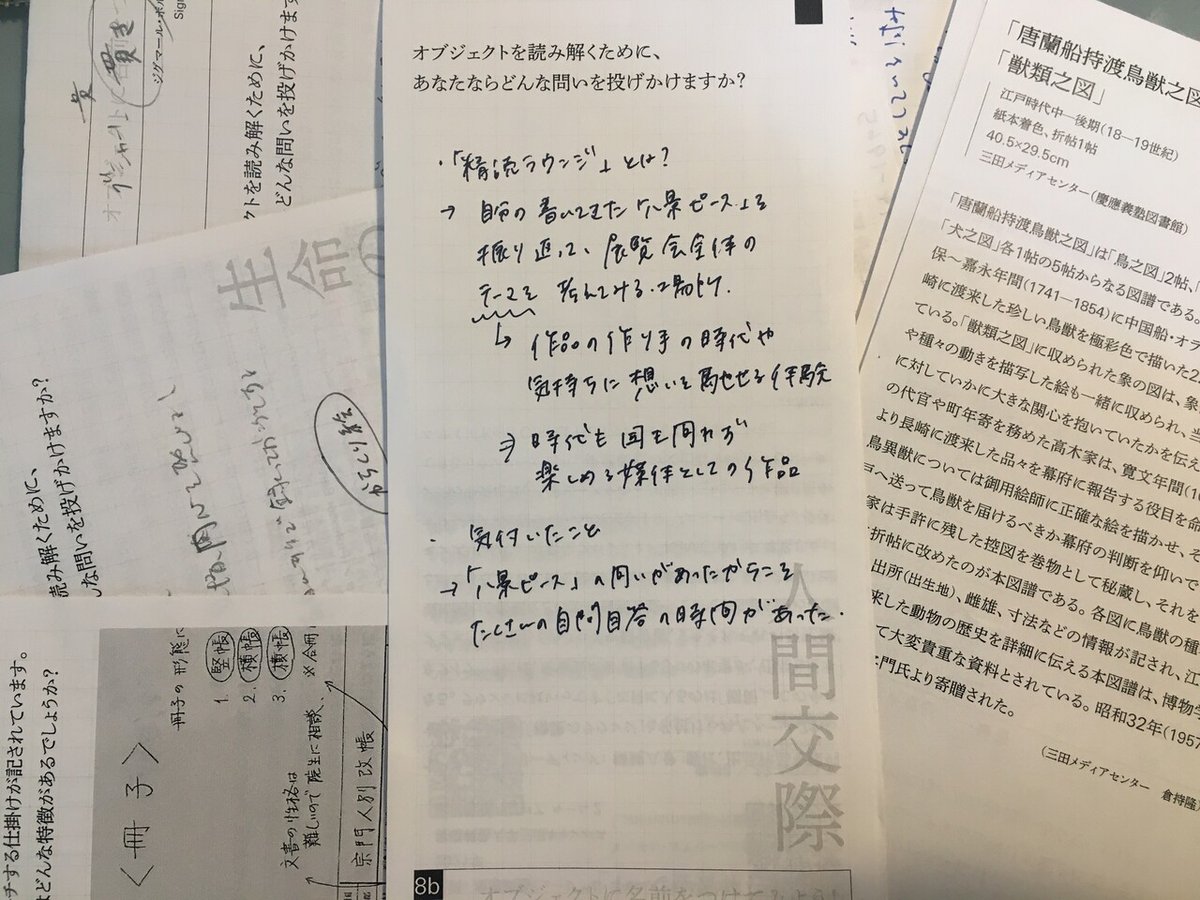 オブジェクトを読み解くために、
あなたならどんな問いを投げかけますか?
・「精読ラウンジ」とは?
→ 自分の書いてきた「八景ピース」を
振り返って、展覧会全体の
テーマを 考えてみる
↳ 作品の作り手の時代や
気持ちに想いを馳せる体験
⇒ 時代も国も問わず
楽しめる媒体としての作品
・気付いたこと
→「八景ピース」の問いがあったからこそ
たくさんの自問自答の時間があった.
人間交際
8b
オブジェクトに名前をつけてみよう!
「唐蘭船持渡鳥獣之図
「獣類之図」
江戸時代中―後期(18―19世紀)
紙本着色、折帖1帖
40.5×29.5cm
三田メディアセンター(慶應義塾図書館)
「唐蘭船持渡鳥獣之図」は「鳥之図」2帖、「
「犬之図」各1帖の5帖からなる図譜である。
保〜嘉永年間(1741―1854)に中国船・オラ
崎に渡来した珍しい鳥獣を極彩色で描いた2
ている。「獣類之図」に収められた象の図は、象
や種々の動きを描写した絵も一緒に収められ、当
に対していかに大きな関心を抱いていたかを伝え
の代官や町年寄を務めた高木家は、寛文年間(16
より長崎に渡来した品々を幕府に報告する役目を命
鳥異獣については御用絵師に正確な絵を描かせ、そ
戸へ送って鳥獣を届けるべきか幕府の判断を仰いで
家は手許に残した控図を巻物として秘蔵し、それを
折帖に改めたのが本図譜である。各図に鳥獣の種
出所(出生地)、雌雄、寸法などの情報が記され、江
来した動物の歴史を詳細に伝える本図譜は、博物学
て大変貴重な資料とされている。昭和32年(1957
門氏より寄贈された。
(三田メディアセンター 倉持隆)
クトを読み解くために、
どんな問いを投げかけます
ジグマール・ポル
Sign
生命の
読み解くために、
んな問いを投げかけますか?
チする仕掛けが記されています。
はどんな特徴があるでしょうか?
〈冊子〉
冊子の形態に
1. 竪帳
2. 横帳
3. 横帳
※合冊
文書の性格は
難しいので院生に相談、
宗門人別改帳